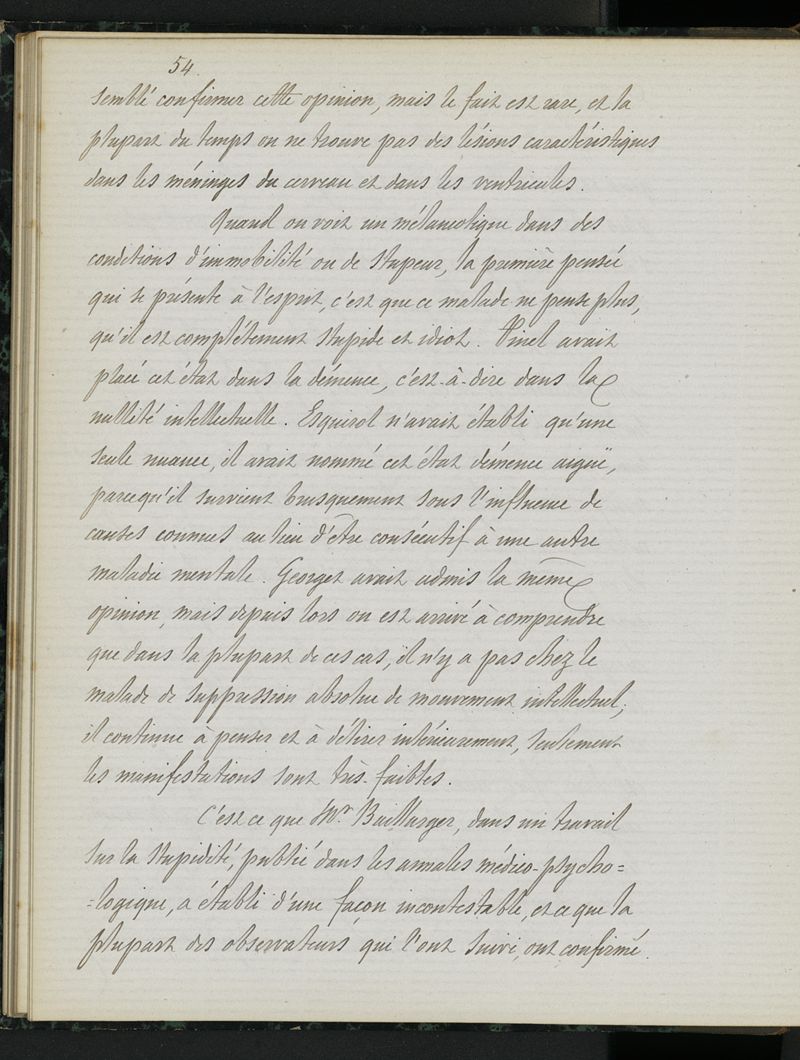 54.
semblé confirmer cette opinion, mais le fait est rare, et la
plupart du temps on ne trouve pas des lésions caractéristiques
dans les méninges du cerveau et dans les ventricules.
Quand on voit un mélancolique dans des
conditions d'immobilité ou de stupeur, la première pensée
qui se présente à l'esprit, c'est que ce malade ne pense plus,
qu'il est complétement stupide et idiot. Pinel avait
placé cet état dans la démence, c'est-à-dire dans la
nullité intellectuelle. Esquirol n'avait établi qu'une
seule nuance, il avait nommé cet état démence aiguë,
parcequ'il survient brusquement sous l'influence de
causes connues au lieu d'être consécutif à une autre
maladie mentale. Georget avait admis la même
opinion, mais depuis lors on est arrivé à comprendre
que dans la plupart de ces cas, il n'y a pas chez le
malade de suppression absolue de mouvement intellectuel;
il continue à penser et à délirer intérieurement, seulement
les manifestations sont très-faibles.
C'est ce que Mr Baillarger, dans un travail
sur la stupidité, publié dans les annales médico-psycho=
=logique, a établi d'une façon incontestable, et ce que la
plupart des observateurs qui l'ont suivi, ont confirmé.